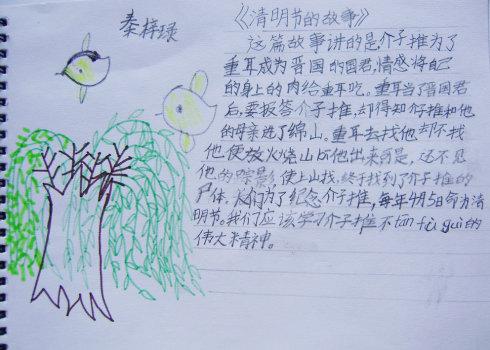 秦梓绿
《清明节的故事》
这篇故事讲的是介子推为了
重耳成为晋国的国君,情愿将自己
的身上的肉给重耳吃。重耳当了晋国君
后,要报答介子推,却得知介子推和他
的母亲进了绵山。重耳去找他却不找
他便放火烧山 他出来 是,还不见
他的踪影,便上山找,终于找到了介子推的
尸体。人们为了纪念介子推,每年4月5日命为清
明节。我们应该学习介子推不tān fù guì的
伟大精神。